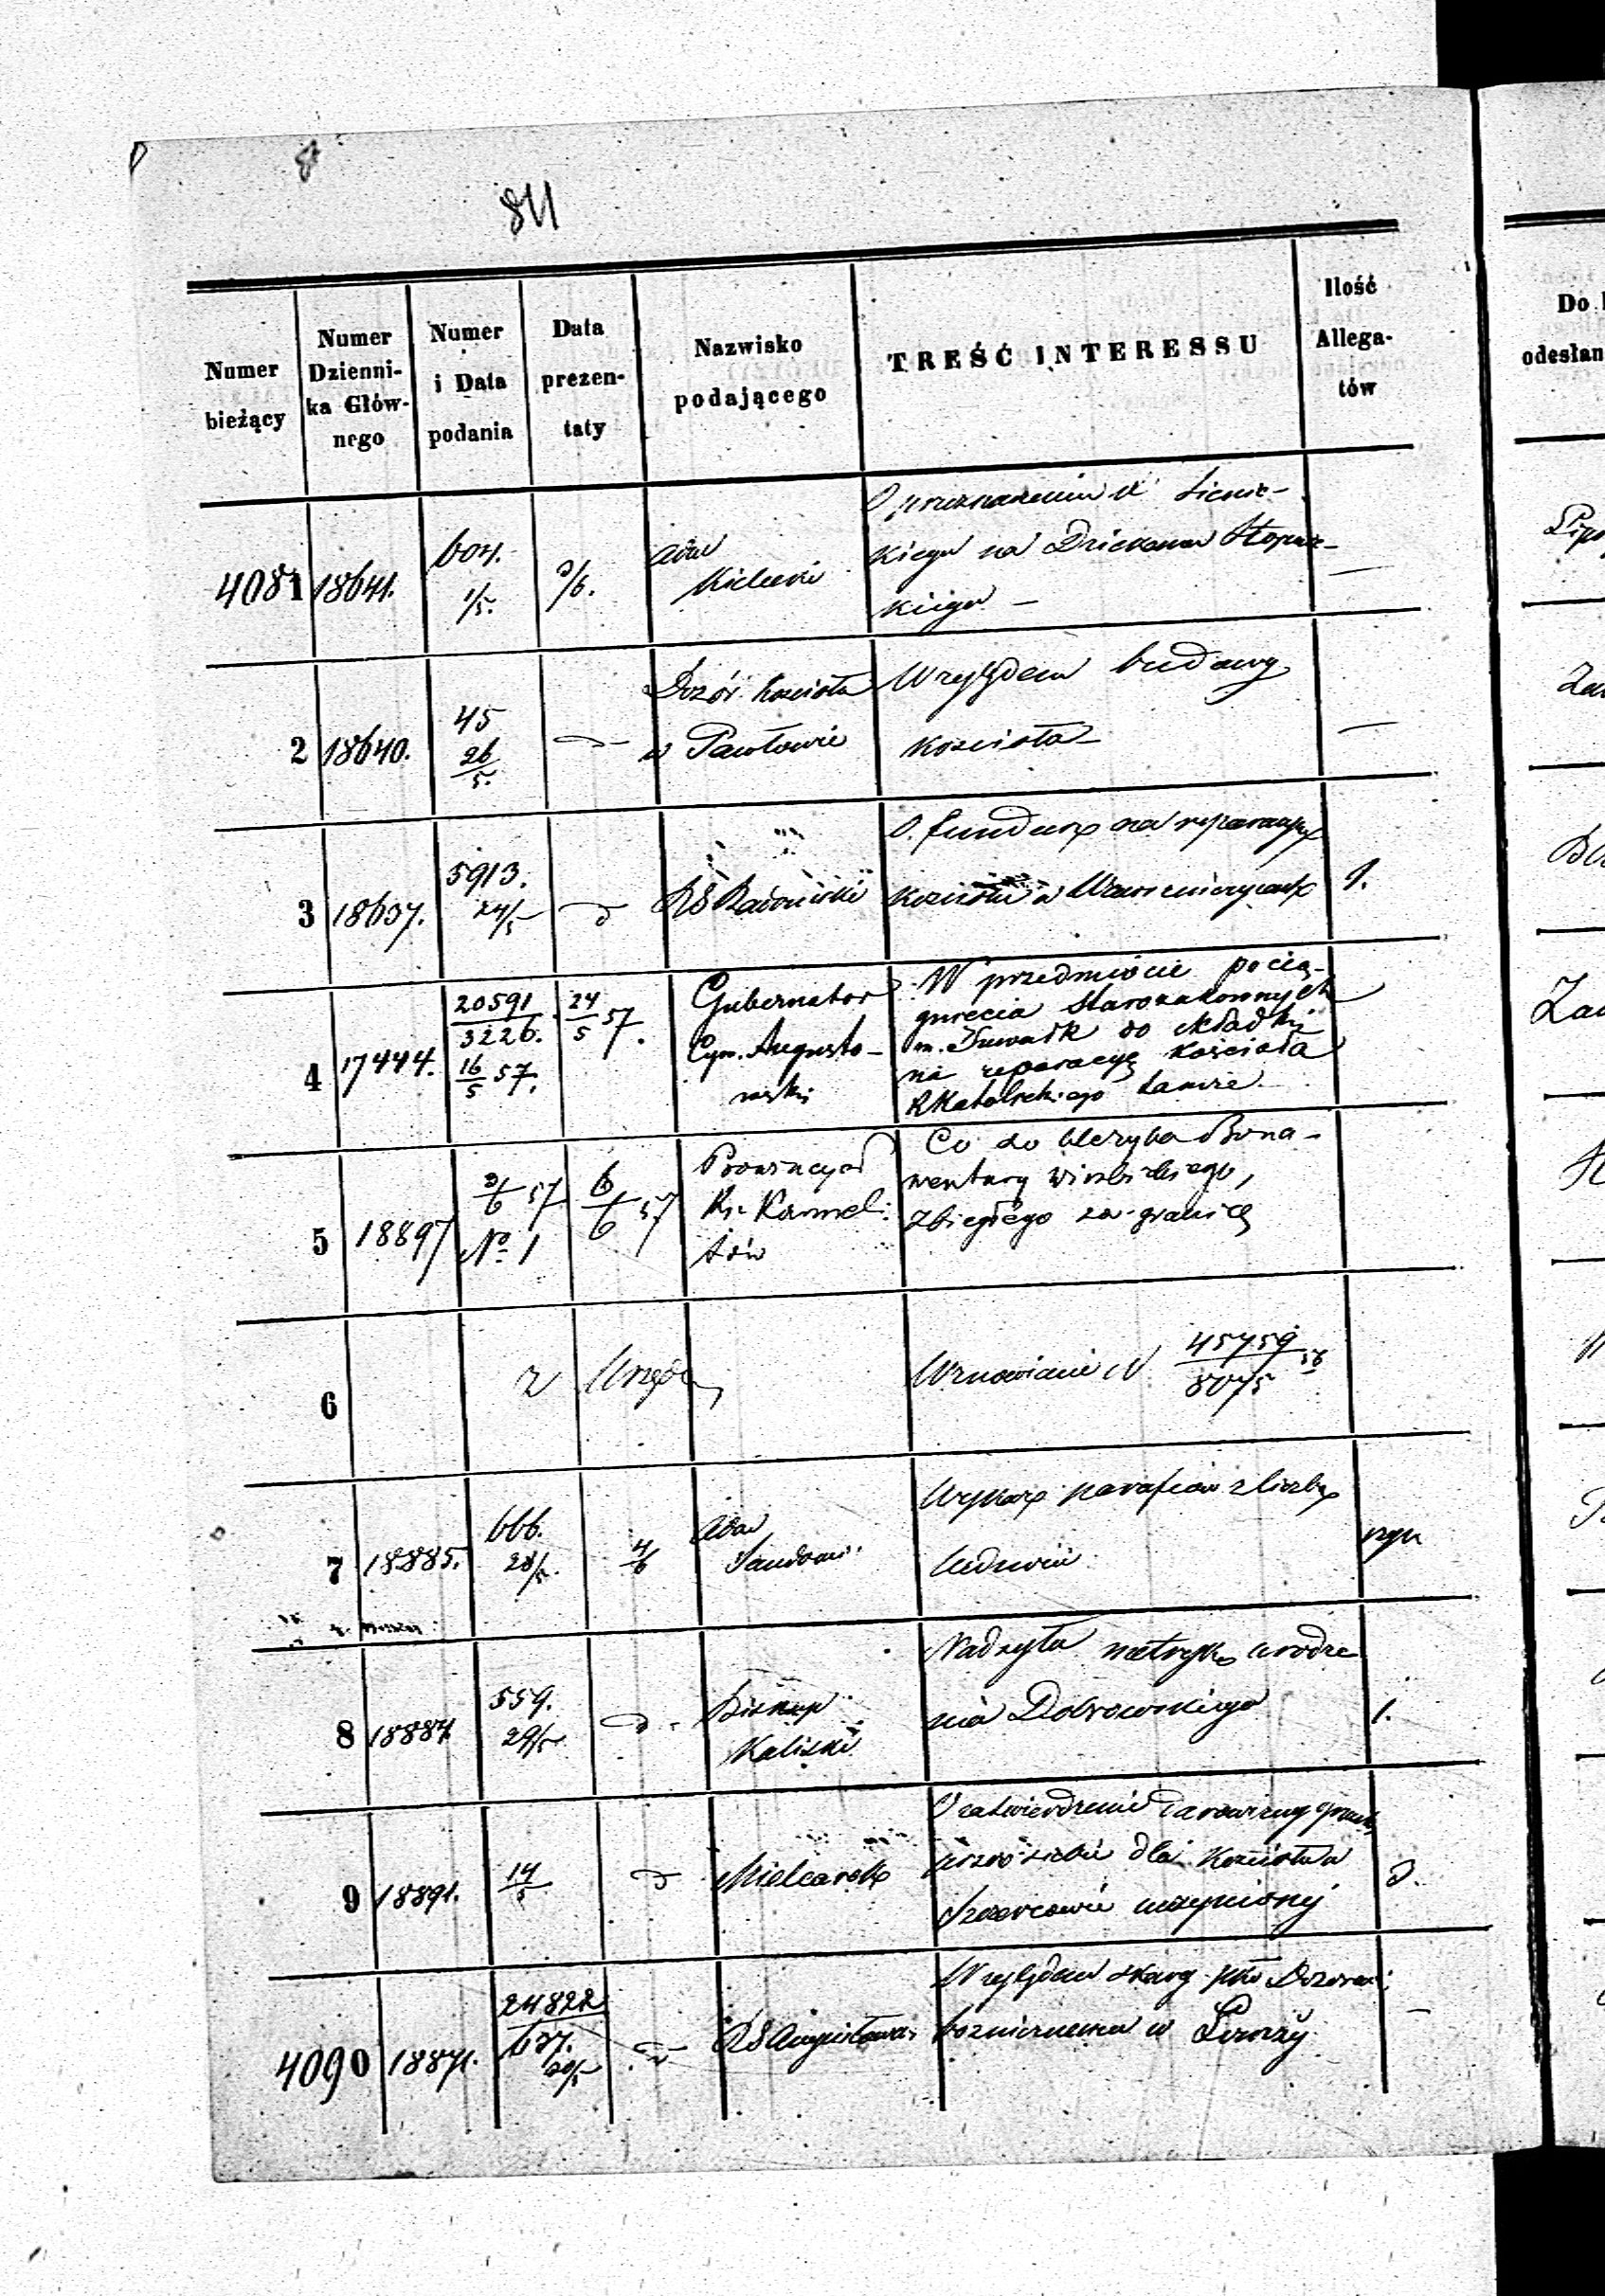 811
Numer bieżący
Numer Dzienni-
ka Głów-
nego
Numer
i Data
podania
Data
prezen-
taty
Nazwisko
podającego
TREŚĆ INTERESSU
Ilość
Allega-
tów
Do
odesłan
4081 18641. 604. 1/5. 3/6.
Kielecki
kiego na Dziekana Stopnic-
kiego —
2 18640. 45 26/5. Dozór kościoła
w Pawłowie
Względem budowy
kościoła —
3 18637. 5913. 24/5 d RG Radomski
O fundusz na reparacyę
kościoła w
4 17444. 20591/3226. 16/5 57. 24/5 57.
Gubernator
Cyw. Augusto-
wski
W przedmiocie pocią-
gnięcia Starozakonnych
m. Suwałk do składki
na reparacyę Kościoła
RKatolickiego tamże.
5 18897 3/6 57 No 1 6/6 57
Prowincyał
Kar. Karmeli-
tów
Co do kleryka Bona-
wentury
zbiegłego za granicę
6 z Urzędu Wznowienie N 45759/8075 56
7 18885. 666. 28/5. 4/6
Sandomi.
Wykaz parafiów z liczbą
8 18887 559. 29/5. d.
Biskup
Kaliski
Nadsyła metrykę urodze
nia Dobrowskiego
1.
9 18891. 14/5 d Mielcarek
O zatwierdzenie darowizny
dla kościoła w
Szczercowie uczynionej
4090 18871. 24822/637. 20/5 RG Augustows.
Względem skarg pko Dozorowi
bożniczemu w Łomży.